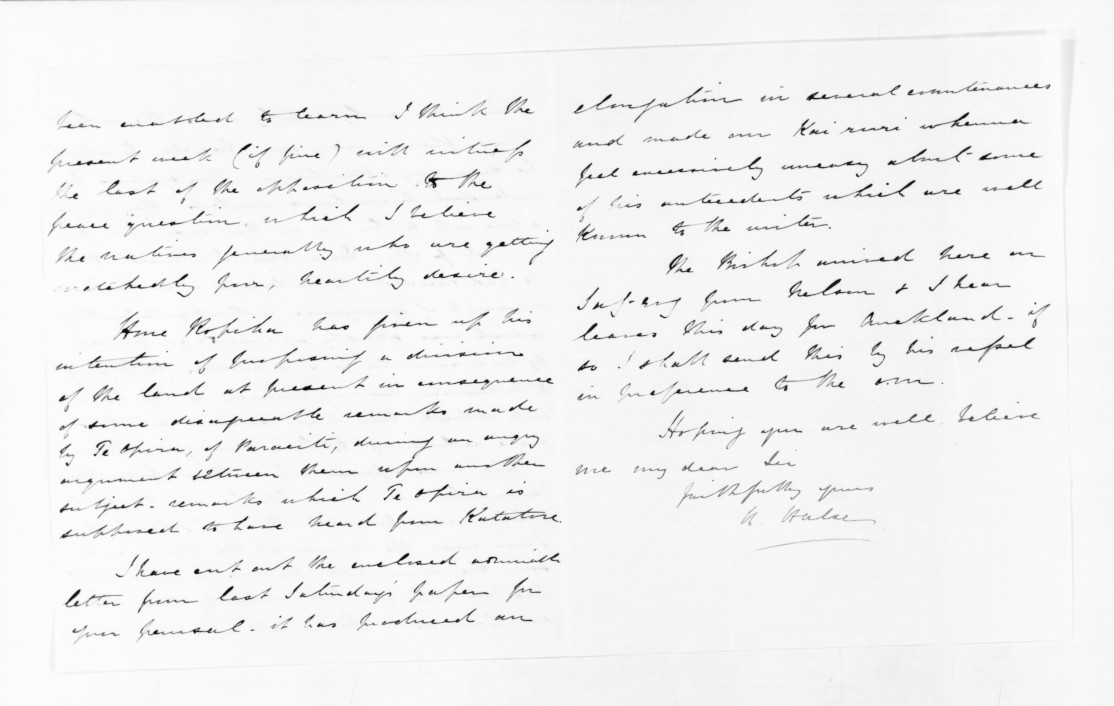 been enabled to learn I think the
present week (if fine) will witness
the last of the opposition to the
peace question, which I believe
the natives generally who are getting
wretchedly poor, heartily desire.
Hone Ropiha has given up his
intention of proposing a division
of the land at present in consequence
of some disagreeable remarks made
by Te Opira, of Waraiti, during an angry
argument between them upon another
subject - remarks which Te Opira is
supposed to have heard from Katatore.
I have cut out the enclosed admirable
letter from last Saturday's paper for
your perusal - it has produced an
elongation in several countenances
and made our Kai ruri whenua
feel excessively uneasy about some
of his antecedents which are well
known to the writer.
The Bishop arrived here on
from Nelson & I hear
leaves this day for Auckland - if
so I shall send this by his vessel
in preference to the
Hoping you are well believe
me my dear Sir
faithfully yours
H. Halse